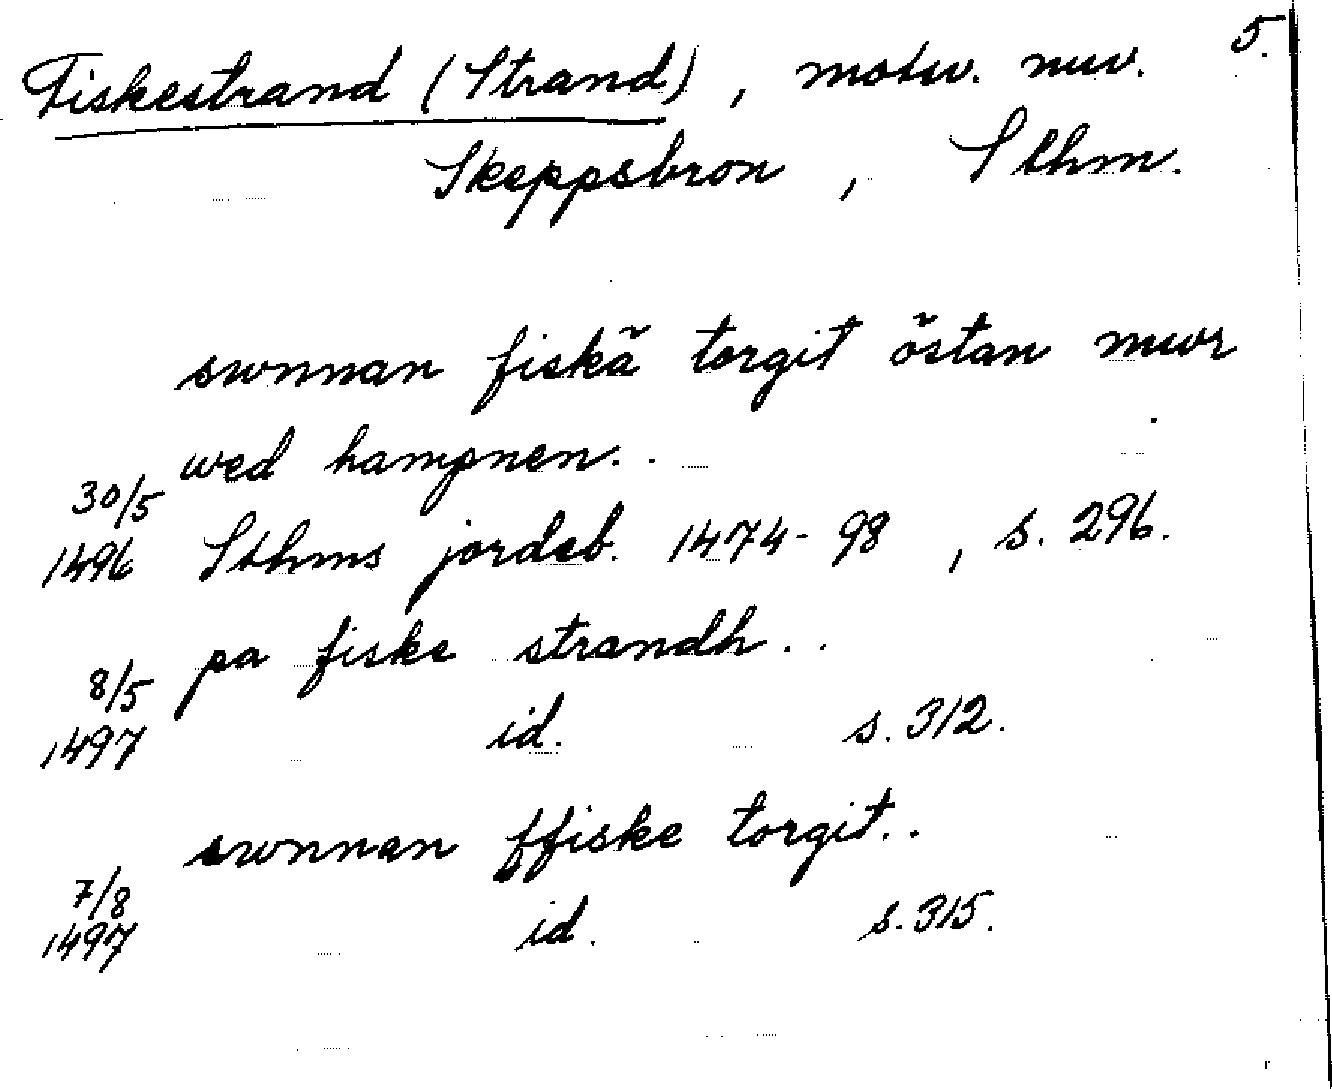 5.
Fiskestrand (Strand), motsv. nuv.
Skeppsbron, Sthm.
swnnan fiskä torgit östan mwr
wed hampnen..
30/5
1496 Sthms jordeb. 1474-98, s. 296.
pa fiske strandh..
8/5
1497 id. s. 312.
swnnan ffiske torgit..
7/8
1497 id. s. 315.